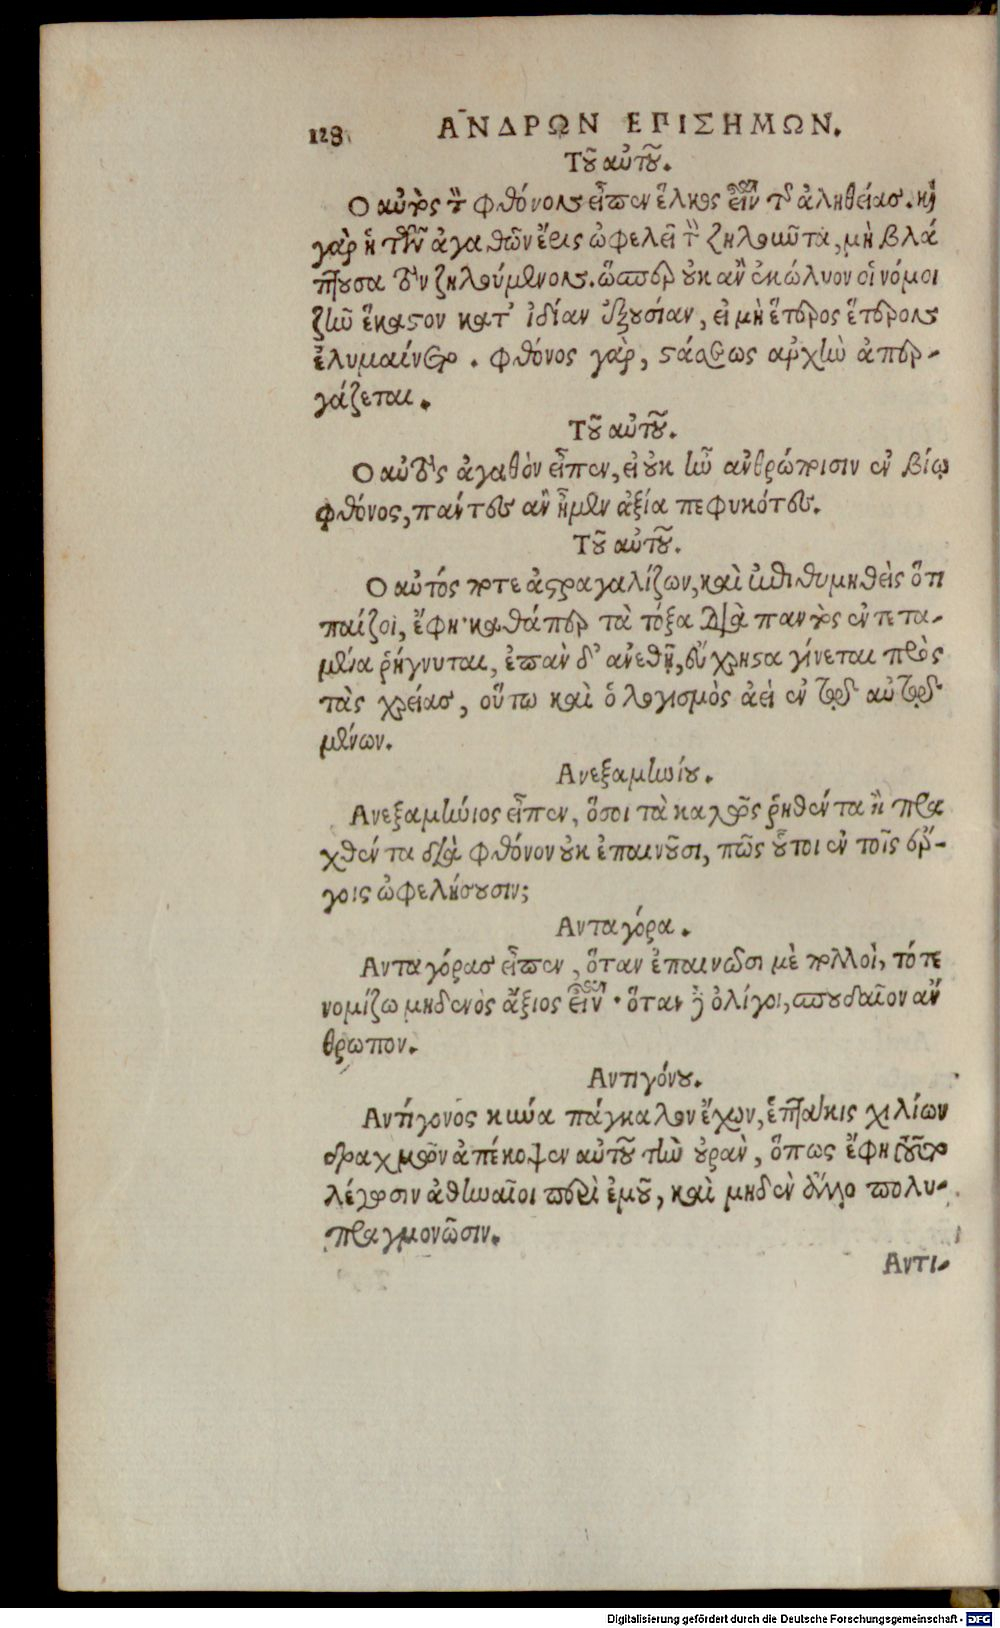 128 ΑΝΔΡΩΝ ΕΠΙΣΗΜΩΝ.
Τοῦ αὐτοῦ.
Ο αὐτὸς τὸν φθόνον εἶπεν ἕλκος εἶναι τῆς ἀληθείας. καὶ
γὰρ ἡ τῶν ἀγαθῶν ἔρις ὠφελεῖ τὸν ζηλοῦντα, μὴ βλά
πτουσα τὸν ζηλούμενον. ὥσπερ οὐκ ἂν ἐκώλυον οἱ νόμοι
ζῆν ἕκαστον κατ' ἰδίαν ἐξουσίαν, εἰ μὴ ἕτερος ἕτερον
ἐλυμαίνετο. φθόνος γὰρ, στάσεως ἀρχὴν ἀπερ-
γάζεται.
Τοῦ αὐτοῦ.
Ο αὐτὸς ἀγαθὸν εἶπεν, εἰ οὐκ ἦν ἀνθρώποισιν ἐν βίῳ
φθόνος, πάντες ἂν ἦμεν ἀξία πεφυκότες.
Τοῦ αὐτοῦ.
Ο αὐτός ποτε ἀστραγαλίζων, καὶ ἐπιθυμηθεὶς ὅτι
παίζοι, ἔφη· καθάπερ τὰ τόξα διὰ παντὸς ἐντετα-
μένα ῥήγνυται, ἐπὰν δ' ἀνεθῇ, εὔχρηστα γίνεται πρὸς
τὰς χρείας, οὕτω καὶ ὁ λογισμὸς ἀεὶ ἐν
μένων.
Ανεξαμηνίου.
Ανεξαμήνιος εἶπεν, ὅσοι τὰ καλῶς ῥηθέντα ἢ πρα
χθέντα διὰ φθόνον οὐκ ἐπαινοῦσι, πῶς οὗτοι ἐν τοῖς ἔρ-
γοις ὠφελήσουσιν;
Ανταγόρα.
Ανταγόρας εἶπεν, ὅταν ἐπαινῶσι μὲ πολλοὶ, τότε
νομίζω μηδενὸς ἄξιος εἶναι· ὅταν δὲ ὀλίγοι, σπουδαῖον ἄν
θρωπον.
Αντιγόνου.
Αντίγονος κύνα πάγκαλον ἔχων, ἑπτάκις χιλίων
δραχμῶν ἀπέκοψεν αὐτοῦ τὴν οὐρὰν, ὅπως ἔφη τοῦτο
λέγωσιν ἀθηναῖοι περὶ ἐμοῦ, καὶ μηδὲν ἄλλο πολυ-
πραγμονῶσιν.
Αντι-
Digitalisierung gefördert durch die Deutsche Forschungsgemeinschaft - DFG